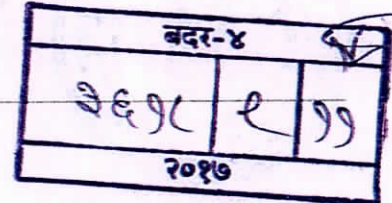 बदर-४
३६१८ ९ ११
२०१७